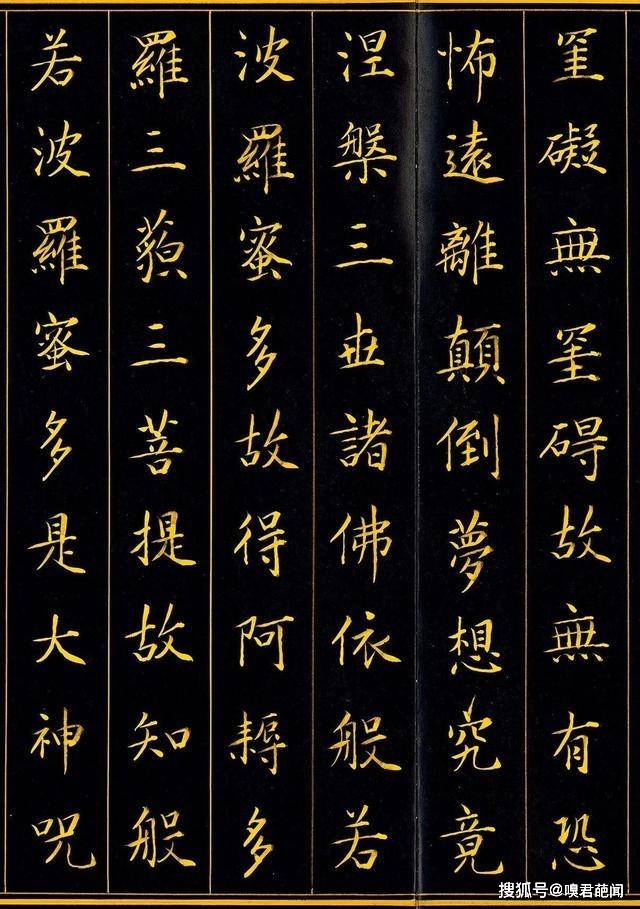 罣礙無罣碍故無有恐
怖遠離顛倒夢想究竟
涅槃三世諸佛依般若
波羅蜜多故得阿耨多
羅三藐三菩提故知般
若波羅蜜多是大神呪
搜狐号@嗅君葩闻